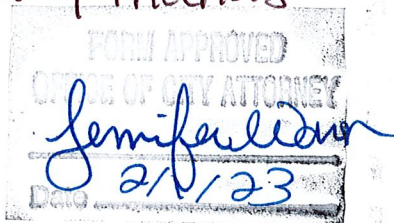 FORM APPROVED
OFFICE OF CITY ATTORNEY
Jennifer
Date 2/1/23